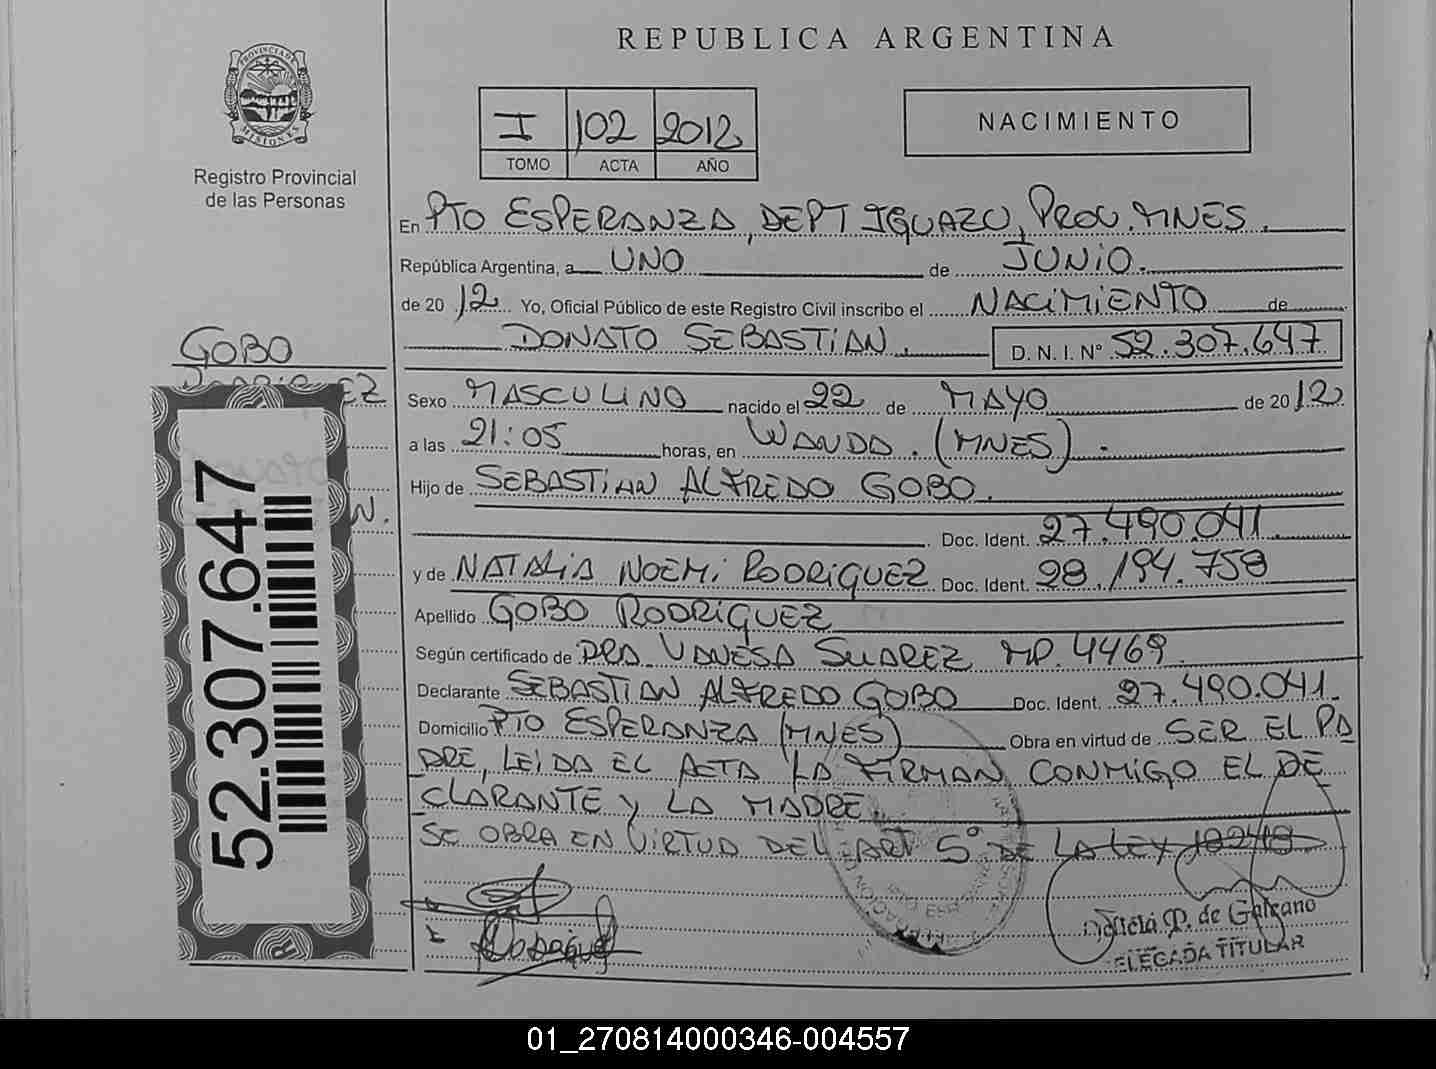 REPUBLICA ARGENTINA
PROVINCIA DE
MISIONES
Registro Provincial
de las Personas
I 102 2012
TOMO ACTA AÑO
NACIMIENTO
En PTO ESPERANZA, DEPT IGUAZU, PROV. MNES.
República Argentina, a UNO de JUNIO.
de 2012 Yo, Oficial Público de este Registro Civil inscribo el NACIMIENTO de
DONATO SEBASTIAN. D. N. I. Nº 52.307.647
GOBO
Sexo MASCULINO nacido el 22 de MAYO de 2012
a las 21:05 horas, en WANDA. (MNES).
Hijo de SEBASTIAN ALFREDO GOBO.
Doc. Ident. 27.490.041
y de NATALIA NOEMI RODRIGUEZ Doc. Ident. 28.194.758
Apellido GOBO RODRIGUEZ
Según certificado de DRA. VANESA SUAREZ MP. 4469.
Declarante SEBASTIAN ALFREDO GOBO Doc. Ident. 27.490.041.
Domicilio PTO ESPERANZA (MNES) Obra en virtud de SER EL PA
DRE, LEIDA EL ACTA LA FIRMAN CONMIGO EL DE
CLARANTE Y LA MADRE.
SE OBRA EN VIRTUD DEL ART 5° DE LA LEY 18248
52.307.647
P. de Galeano
DELEGADA TITULAR
01_270814000346-004557